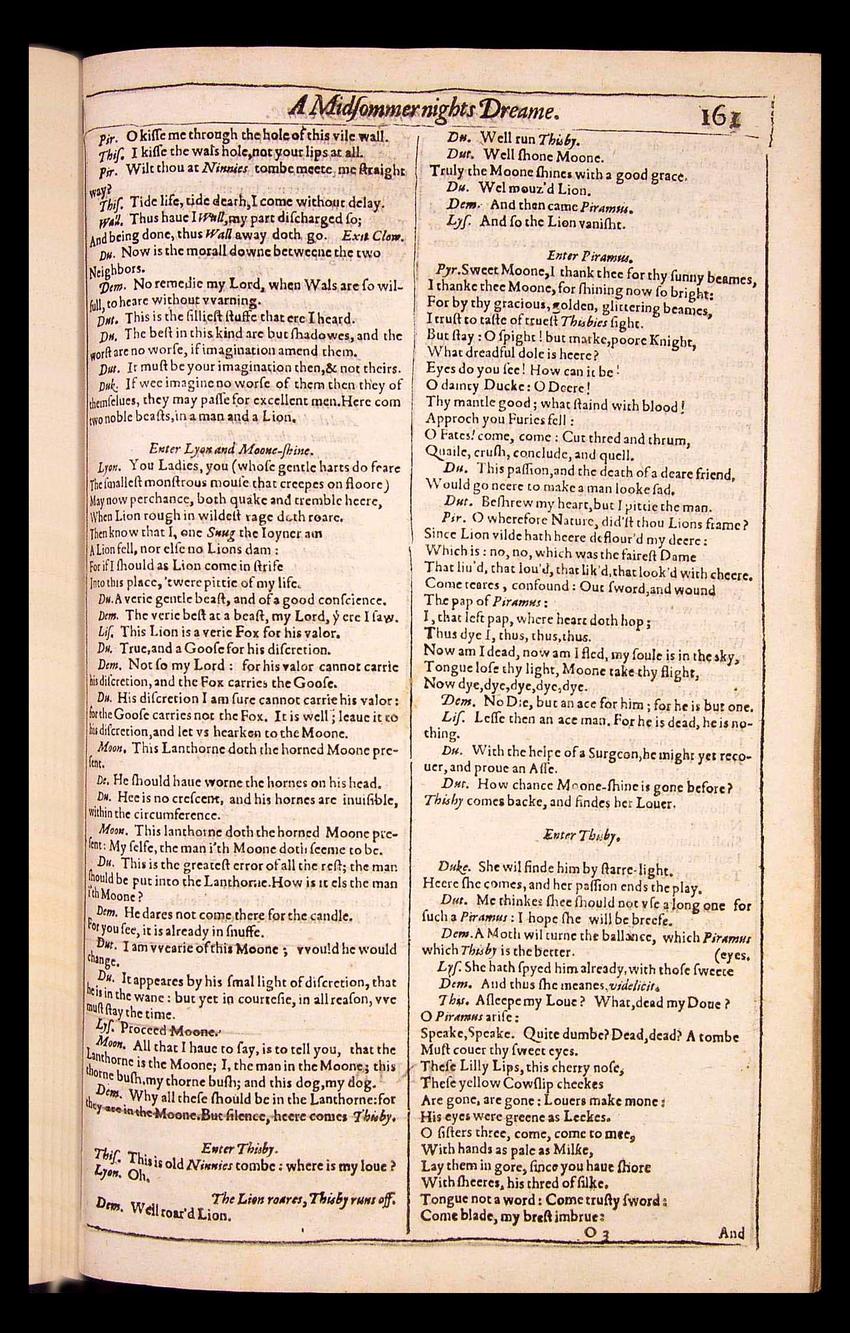 A Midſommer nights Dreame.
161
Pir. O kiſſe me through the hole of this vile wall.
Thiſ. I kiſſe the wals hole,not your lips at all.
Pir. Wilt thou at Ninnies tombe meete me ſtraight
way?
Thiſ. Tide life, tide death,I come without delay.
Wall. Thus haue I Wall,my part diſcharged ſo;
And being done, thus Wall away doth go. Exit Clow.
Du. Now is the morall downe betweene the two
Neighbors.
Dem. No remedie my Lord, when Wals are ſo wil-
full, to heare without vvarning.
Dut. This is the ſillieſt ſtuffe that ere I heard.
Du. The beſt in this kind are but ſhadowes, and the
worſt are no worſe, if imagination amend them.
Dut. It muſt be your imagination then,& not theirs.
Duk. If wee imagine no worſe of them then they of
themſelues, they may paſſe for excellent men.Here com
two noble beaſts,in a man and a Lion.
Enter Lyon and Moone-ſhine.
Lyon. You Ladies, you (whoſe gentle harts do feare
The ſmalleſt monſtrous mouſe that creepes on floore)
May now perchance, both quake and tremble heere,
When Lion rough in wildeſt rage doth roare.
Then know that I, one Snug the Ioyner am
A Lion fell, nor elſe no Lions dam :
For if I ſhould as Lion come in ſtrife
Into this place, 'twere pittie of my life.
Du.A verie gentle beaſt, and of a good conſcience.
Dem. The verie beſt at a beaſt, my Lord, ẏ ere I ſaw.
Liſ. This Lion is a verie Fox for his valor.
Du. True,and a Gooſe for his diſcretion.
Dem. Not ſo my Lord : for his valor cannot carrie
his diſcretion, and the Fox carries the Gooſe.
Du. His diſcretion I am ſure cannot carrie his valor :
for the Gooſe carries not the Fox. It is well ; leaue it to
his diſcretion,and let vs hearken to the Moone.
Moon. This Lanthorne doth the horned Moone pre-
ſent.
De. He ſhould haue worne the hornes on his head.
Du. Hee is no creſcent, and his hornes are inuiſible,
within the circumference.
Moon. This lanthorne doth the horned Moone pre-
ſent: My ſelfe, the man i'th Moone doth ſeeme to be.
Du. This is the greateſt error of all the reſt; the man
ſhould be put into the Lanthorne.How is it els the man
i'th Moone?
Dem. He dares not come there for the candle.
For you ſee, it is already in ſnuffe.
Dut. I am vvearie of this Moone ; vvould he would
change.
Du. It appeares by his ſmal light of diſcretion, that
he is in the wane : but yet in courteſie, in all reaſon, vve
muſt ſtay the time.
Lyſ. Proceed Moone.
Moon. All that I haue to ſay, is to tell you, that the
Lanthorne is the Moone; I, the man in the Moone; this
thorne buſh,my thorne buſh; and this dog,my dog.
Dem. Why all theſe ſhould be in the Lanthorne:for
they are in the Moone.But ſilence, heere comes Thisby.
Enter Thisby.
Thiſ. This is old Ninnies tombe : where is my loue ?
Lyon. Oh.
The Lion roares, Thisby runs off.
Dem. Well roar'd Lion.
Du. Well run Thisby.
Dut. Well ſhone Moone.
Truly the Moone ſhines with a good grace.
Du. Wel mouz'd Lion.
Dem. And then came Piramus.
Lyſ. And ſo the Lion vaniſht.
Enter Piramus.
Pyr.Sweet Moone,I thank thee for thy ſunny beames,
I thanke thee Moone, for ſhining now ſo bright:
For by thy gracious, golden, glittering beames,
I truſt to taſte of trueſt Thisbies ſight.
But ſtay : O ſpight ! but marke,poore Knight,
What dreadful dole is heere?
Eyes do you ſee! How can it be !
O dainty Ducke: O Deere!
Thy mantle good; what ſtaind with blood!
Approch you Furies fell :
O Fates! come, come : Cut thred and thrum,
Quaile, cruſh, conclude, and quell.
Du. This paſſion,and the death of a deare friend,
Would go neere to make a man looke ſad.
Dut. Beſhrew my heart,but I pittie the man.
Pir. O wherefore Nature, did'ſt thou Lions frame?
Since Lion vilde hath heere deflour'd my deere :
Which is : no, no, which was the faireſt Dame
That liu'd, that lou'd, that lik'd,that look'd with cheere.
Come teares , confound : Out ſword,and wound
The pap of Piramus :
I, that left pap, where heart doth hop;
Thus dye I, thus, thus,thus.
Now am I dead, now am I fled, my ſoule is in the sky,
Tongue loſe thy light, Moone take thy flight,
Now dye,dye,dye,dye,dye.
Dem. No Die, but an ace for him ; for he is but one.
Liſ. Leſſe then an ace man. For he is dead, he is no-
thing.
Du. With the helpe of a Surgeon,he might yet reco-
uer, and proue an Aſſe.
Dut. How chance Moone-ſhine is gone before?
Thisby comes backe, and findes her Louer.
Enter Thisby.
Duke. She wil finde him by ſtarre-light.
Heere ſhe comes, and her paſſion ends the play.
Dut. Me thinkes ſhee ſhould not vſe a long one for
ſuch a Piramus : I hope ſhe will be breefe.
Dem.A Moth wil turne the ballance, which Piramus
which Thisby is the better. (eyes.
Lyſ. She hath ſpyed him already,with thoſe ſweete
Dem. And thus ſhe meanes,videlicit.
This. Aſleepe my Loue? What,dead my Doue?
O Piramus ariſe :
Speake,Speake. Quite dumbe? Dead,dead? A tombe
Muſt couer thy ſweet eyes.
Theſe Lilly Lips, this cherry noſe,
Theſe yellow Cowſlip cheekes
Are gone, are gone : Louers make mone :
His eyes were greene as Leekes.
O ſiſters three, come, come to mee,
With hands as pale as Milke,
Lay them in gore, ſince you haue ſhore
With ſheeres, his thred of ſilke.
Tongue not a word : Come truſty ſword :
Come blade, my breſt imbrue:
O 3
And